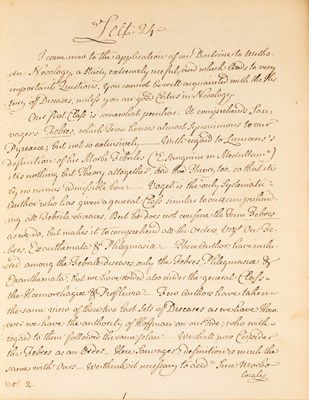 Lect: 24
I come now to the application of our Doctrine to Metho-
dic Nosology, a Study extremely useful, and which leads to very
important Questions, you cannot be well acquainted with the His
tory of Diseases, unless you are good Critics in Nosology
Our first Class is somewhat peculiar. It comprehends Sau-
vages's Febres, which some he uses almost Synonimous to our
Pyrexiae; but not so exclusively. With regard to Linnaeus's
definition of his Morbi Febriles ("E Sanguine in Medullam")
it is nothing but Theory altogether, and that Theory too, so that it is
by no means admissible here. Vogel is the only Systematic
Author who has given a general Class similar to ours comprehend
ing all Febrile diseases. But he does not confine the term Febres
as we do, but makes it to comprehend all the Orders Viz of our Fe-
bres. Exanthemata & Phlegmasiae. These Authors have inclu
ded among the Febrile diseases, only the Febres, Phlegmasiae &
Exanthemata, but we have added also under the general Class
the Haemorrhagiae & Profluvia. Few Authors have taken
the same view of these two last Sets of Diseases as we have. How-
ever we have the authority of Hoffman on our side, who with
regard to them followed the same plan. We shall now Consider
the Febres as an Order. Here Sauvages' definition is much the
same with Ours. We think it necessary to add "Sine Morbo
Vol. 2. locali
1